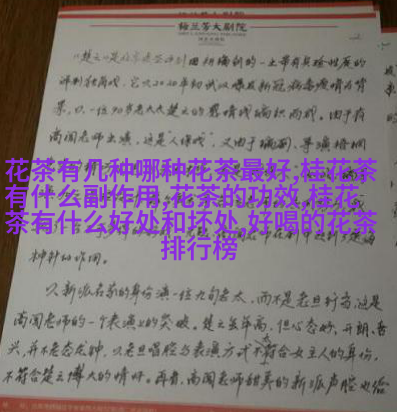 梅兰芳大剧院
的一出带有实验性质的
评剧独角戏,它以2020年初武汉爆发新冠病毒疫情为背
景,以一位90多岁老太太楚云的爱情线编织而成。由于有
高闯老师主演,这是“人保戏”,又由于编剧、导演培训
花茶有几种哪种花茶最好,桂花茶
有什么副作用,花茶的功效,桂花
茶有什么好处和坏处,好喝的花茶
排行榜
的作用。
以新派名家的身份演一位九旬老太,而不是老旦行当,这是
高闯老师的一个表演上的突破。楚云虽年高,但心态好,开朗、善
兴,并不老态龙钟,以老旦唱腔与表演方式不符合女主人的身份,
不符合楚云博大的情怀。再者,高闯老师甜美的新派声腔也给